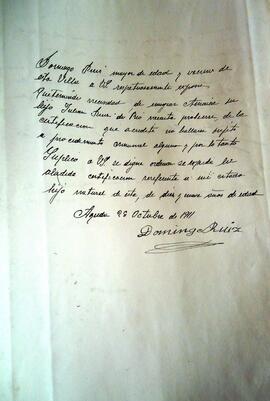 Domingo Ruiz mayor de edad y vecino de
esta Villa a VS respetuosamente expone
Pretendiendo necesidad de emigrar America su
hijo Julian Ruiz de Rio necesita proveerse de la
certificacion que acredite no hallarse sujeto
a procedimiento criminal alguno y por lo tanto
Suplico a VS se digne ordenar se expida la
aludida certificacion referente a mi citado
hijo natural de esta, de diez y nueve años de edad
Agreda 23 Octubre de 1911
Domingo Ruiz